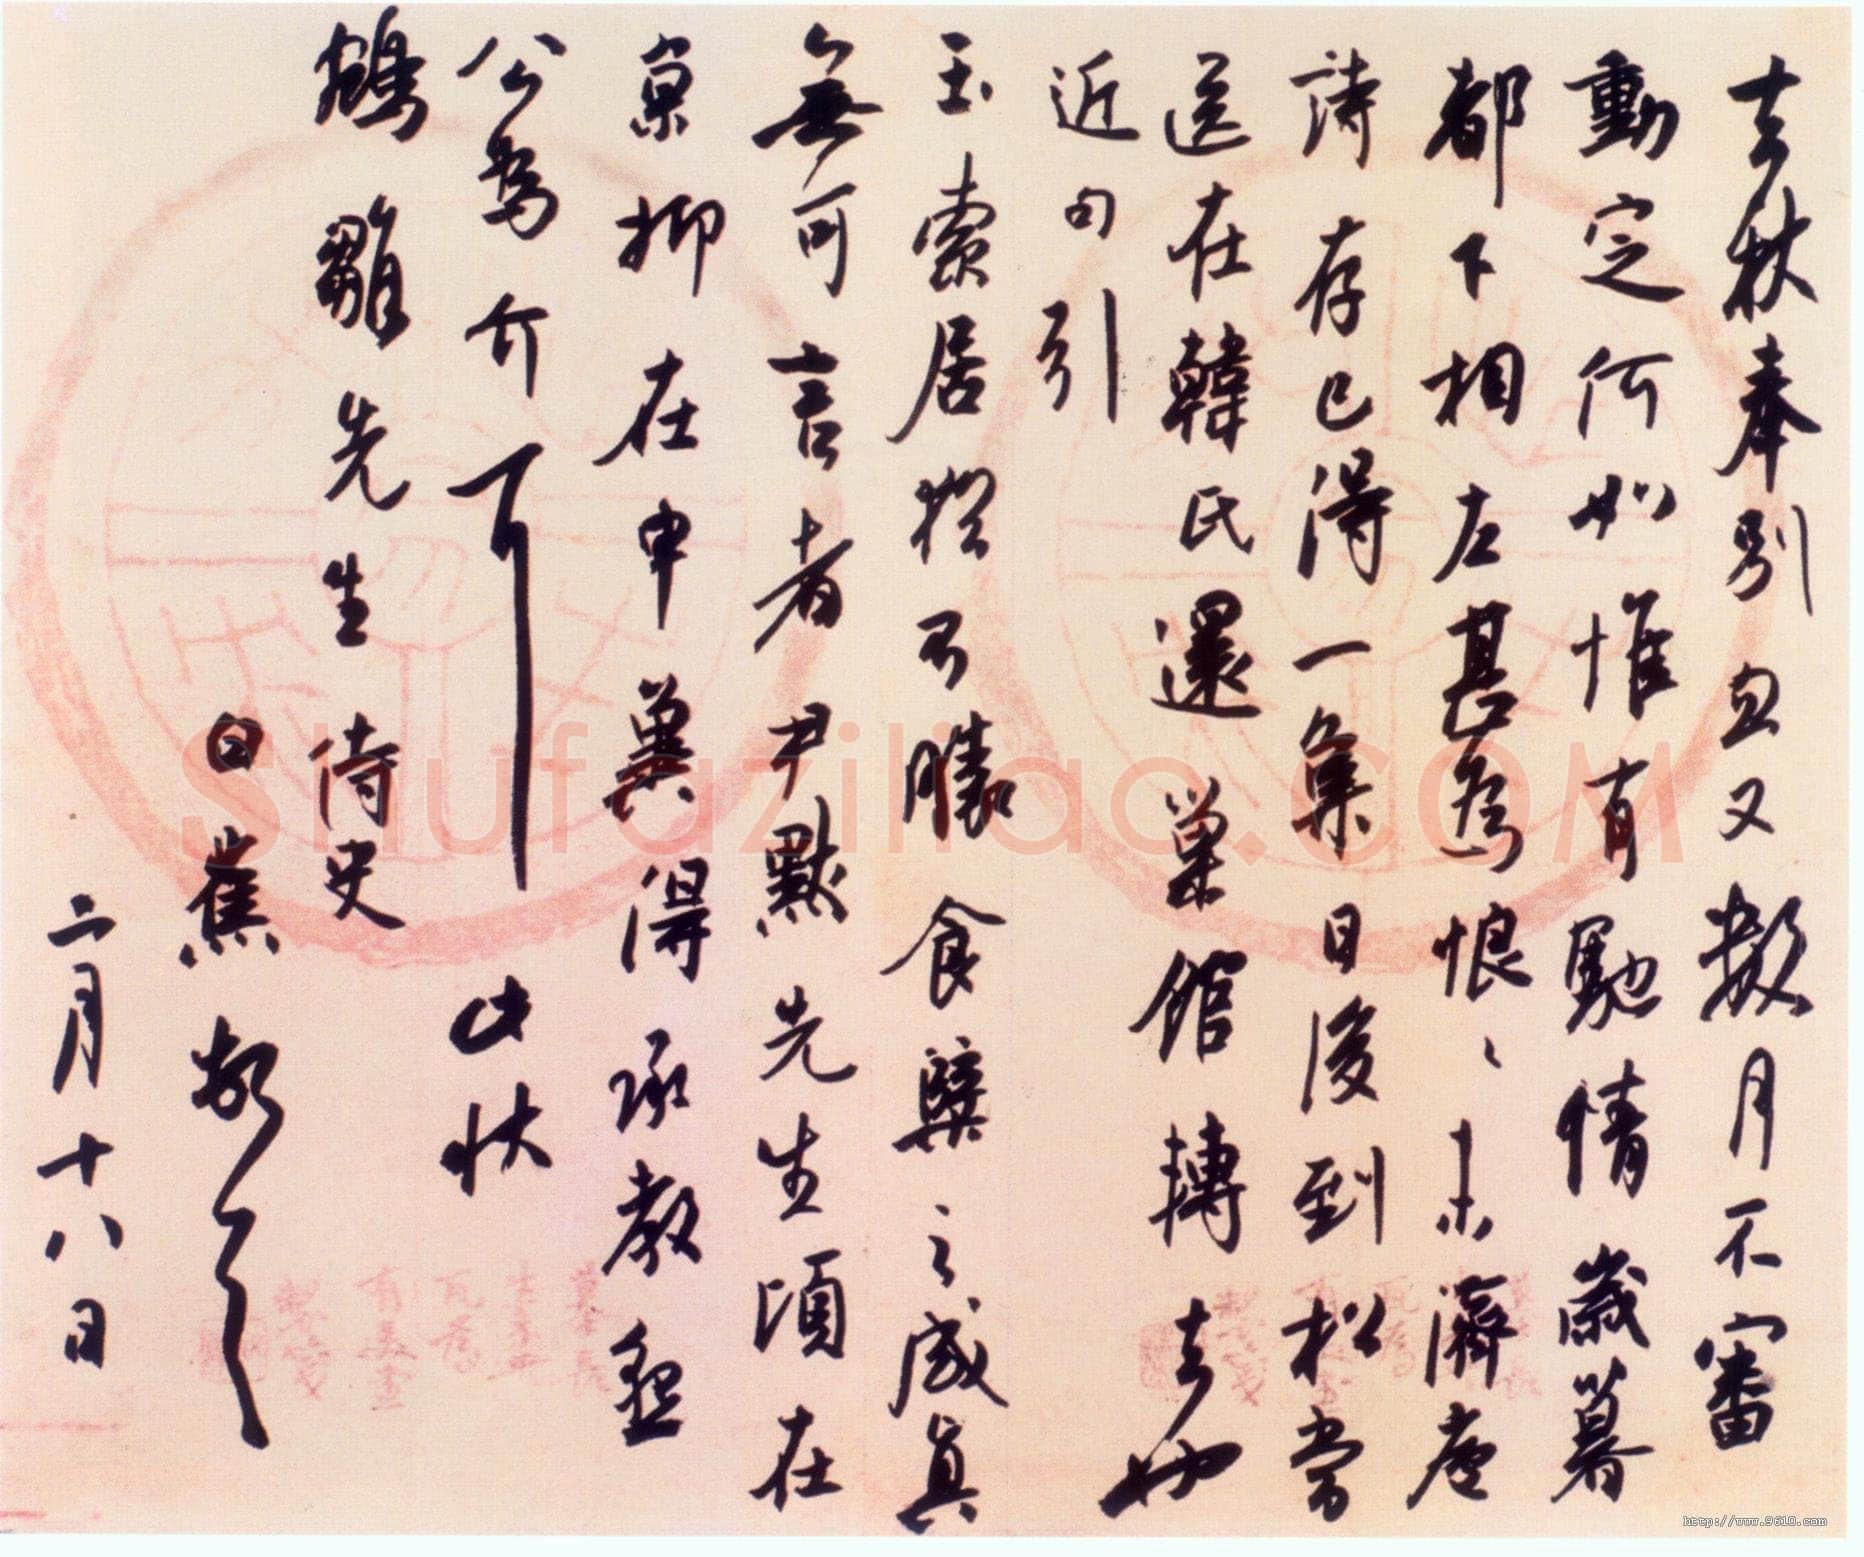 去秋奉別忽又數月不審
動定何如惟有馳情歲暮
都下相左甚為恨々未濟廬
詩存已得一集日後到松當
送在韓氏還巢館轉去妙
近句引
玉索居猶不勝食蘖之感真
無可言者尹默先生頃在
京抑在申冀得承教丞
公為介耳 此狀
鵷雛先生 侍史
白蕉 頓首
二月十八日
shufaziliao.com
http://www.9610.com